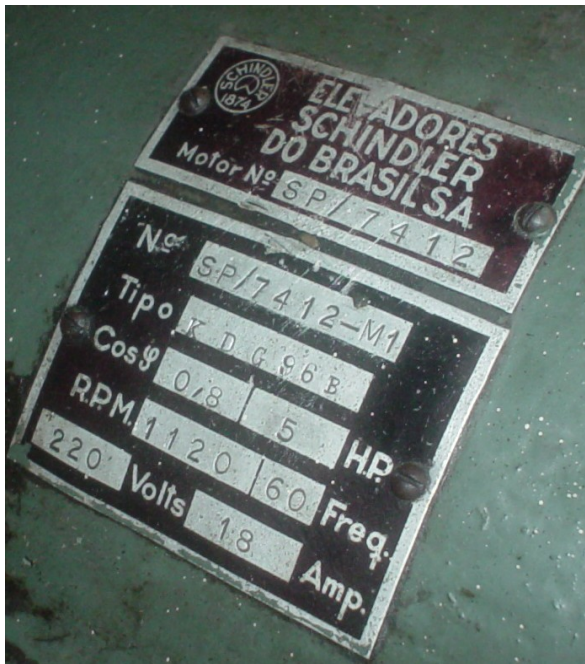 SCHINDLER
1874
ELEVADORES
SCHINDLER
DO BRASIL S.A.
Motor Nº SP/7412
Nº SP/7412-M1
Tipo KDG96B
Cosφ 0/8 5 H.P.
R.P.M. 1120 60 Freq.
220 Volts 18 Amp.